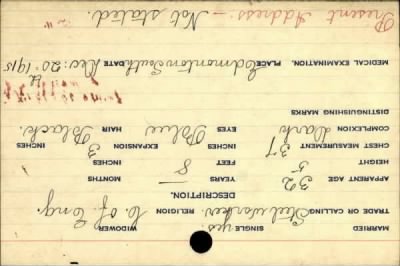 MARRIED SINGLE yes. WIDOWER
TRADE OR CALLING Steel worker RELIGION C. of Eng.
DESCRIPTION.
APPARENT AGE 32 YEARS — MONTHS
HEIGHT 5 FEET 8 INCHES
CHEST MEASUREMENT 37 INCHES EXPANSION 3 INCHES
COMPLEXION Dark EYES Blue HAIR Black
DISTINGUISHING MARKS
MEDICAL EXAMINATION. PLACE Edmonton South DATE Dec: 20: 1915
Present Address:— Not stated.